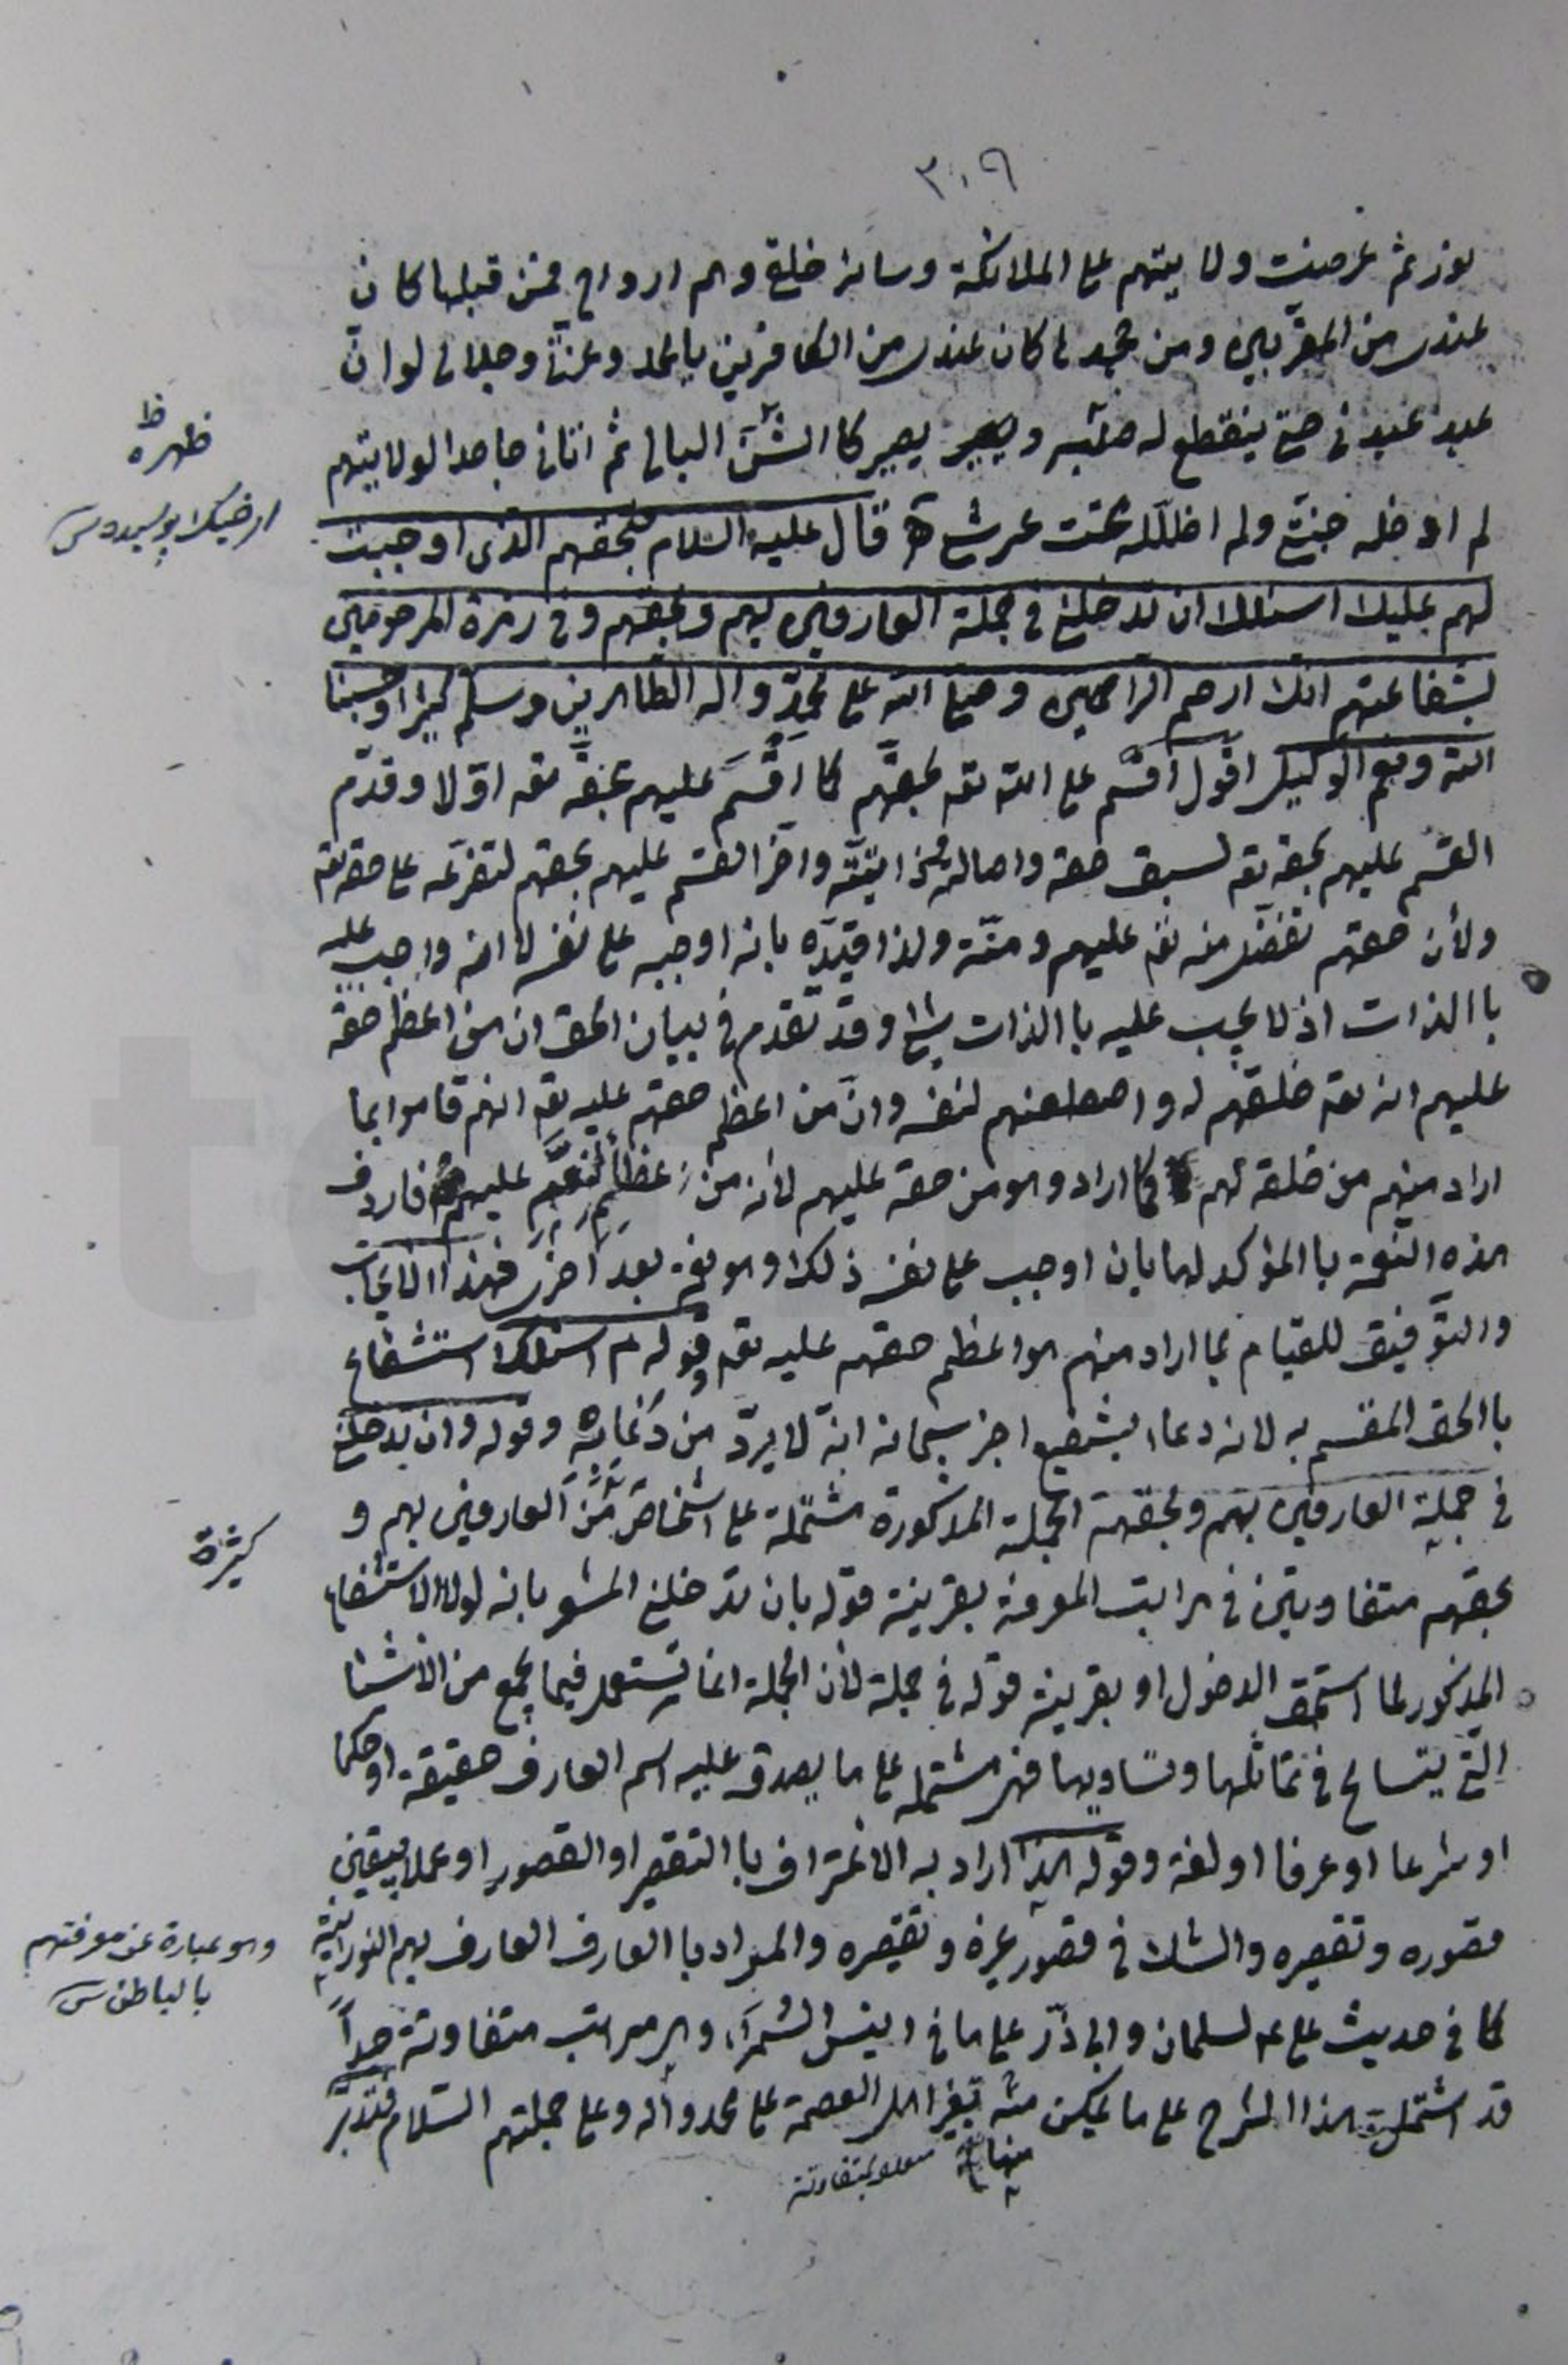 ٣٠٩
نور ثم عرضت ولايتهم على الملائكة وسائر خلقي وهم ارواح فمن قبلها كان
عندي من المقربين ومن جحدها كان عندي من الكافرين يا محمد وعزتي وجلالي لو ان
عبد عبدني حتى ينقطع له صلبه ويصير يصير كا الشن البالي ثم اتاني جاحدا لولايتهم
ظهره ظ
لم ادخله جنتي ولم اظلله تحت عرشي قال عليه السلام فبحقهم الذى اوجبت
لهم عليك اسئلك ان تدخلني في جملة العارفين بهم وبحقهم وفي زمرة المرحومين
لشفاعتهم انك ارحم الراحمين وصلى الله على محمد وآله الطاهرين وسلم كثيرا وحسبنا
الله ونعم الوكيل اقول اقسم على الله تعه بحقهم كا اقسم عليهم بحقه تعه اولا وقدم
القسم عليهم بحقه تعه لسبق حقه واصالته وذاتيته واخر القسم عليهم بحقهم لتفرعه على حقه تعه
ولأن حقهم تفضل منه تعه عليهم ومنة ولذا قيده بانه اوجبه على نفسه لا انه واجب عليه
با الذات اذ لا يجب عليه با الذات شئ وقد تقدم في بيان الحق ان من اعظم حقه
عليهم انه تعه خلقهم له واصطنعهم لنفسه وان من اعظم حقهم عليه تعه انهم قاموا بما
اراد منهم من خلقه لهم كما اراد وهو من حقه عليهم لأنه من عظائم النعم عليهم فاردف
هذه النعمة با المؤكد لها بان اوجب على نفسه ذلك وهو نعمة بعد اخرى فهذا الايجاب
والتوفيق للقيام بما اراد منهم هو اعظم حقهم عليه تعه وقوله ع اسئلك استشفاع
با الحق المقسم به لانه دعاء بشفيع اخبر سبحانه انه لا يرد من دعاه به وقوله وان تدخلني
في جملة العارفين بهم وبحقهم الجملة المذكورة مشتملة على اشخاص من العارفين بهم و
كثيرة
بحقهم متفاوتين في مراتب المعرفة بقرينة قوله بان تدخلني المشعر بانه لولا الاستشفاع
المذكور لما استحق الدخول او بقرينة قوله في جملة لأن الجملة انما تستعمل فيما يجمع من الاشيا
التي يتسامح في تماثلها وتساويها فهي مشتملة على ما يصدق عليه اسم العارف حقيقة او حكما
او شرعا او عرفا او لغة وقوله هذا اراد به الاعتراف با التقصير او القصور او عملا بيقين
قصوره وتقصيره والشك في قصور غيره وتقصيره والمراد با العارف العارف بهم النورانية
وهو عبارة عن معرفتهم
بالباطن
كما في حديث علي ع لسلمان وابي ذر على ما في انيس السمراء وهي مراتب متفاوتة جدا
قد اشتمل هذا الشرح على ما يمكن منه لغير اهل العصمة على محمد وآله وعلى جملتهم السلام فتدبر